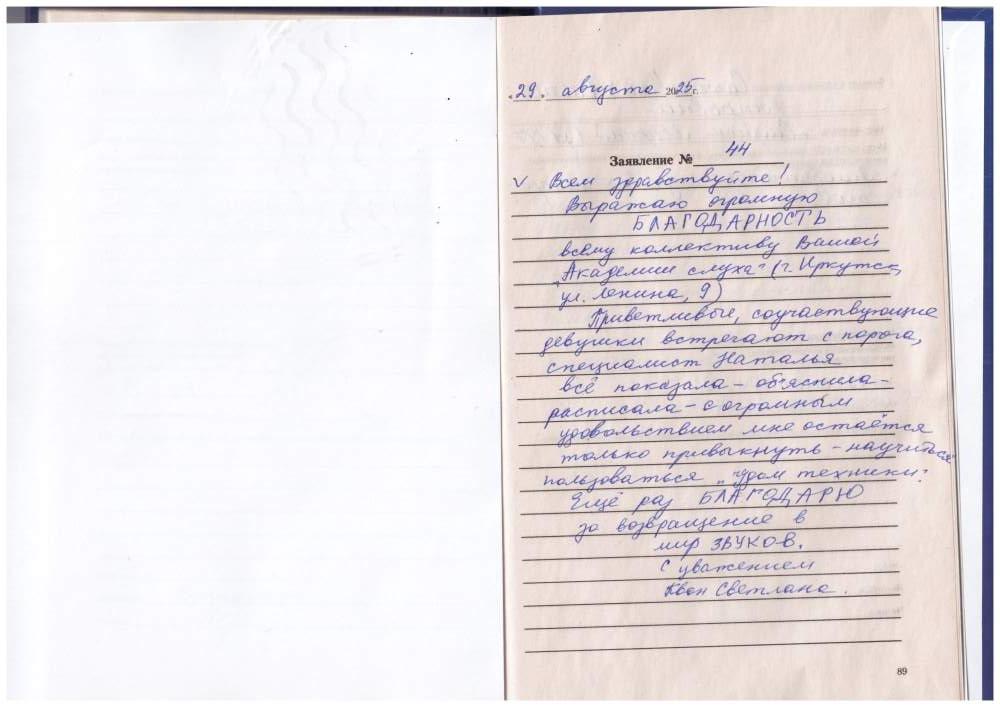 .29. августа 2025г.
Заявление № 44
√ Всем здравствуйте!
Выражаю огромную
БЛАГОДАРНОСТЬ
всему коллективу Вашей
„Академии слуха" (г. Иркутск,
ул. Ленина, 9)
Приветливые, соучаствующие
девушки встречают с порога,
специалист Наталья
всё показала - объяснила -
расписала - с огромным
удовольствием мне остаётся
только привыкнуть - научиться
пользоваться „чудом техники".
Ещё раз БЛАГОДАРЮ
за возвращение в
мир ЗВУКОВ.
С уважением
Квон Светлана.
89